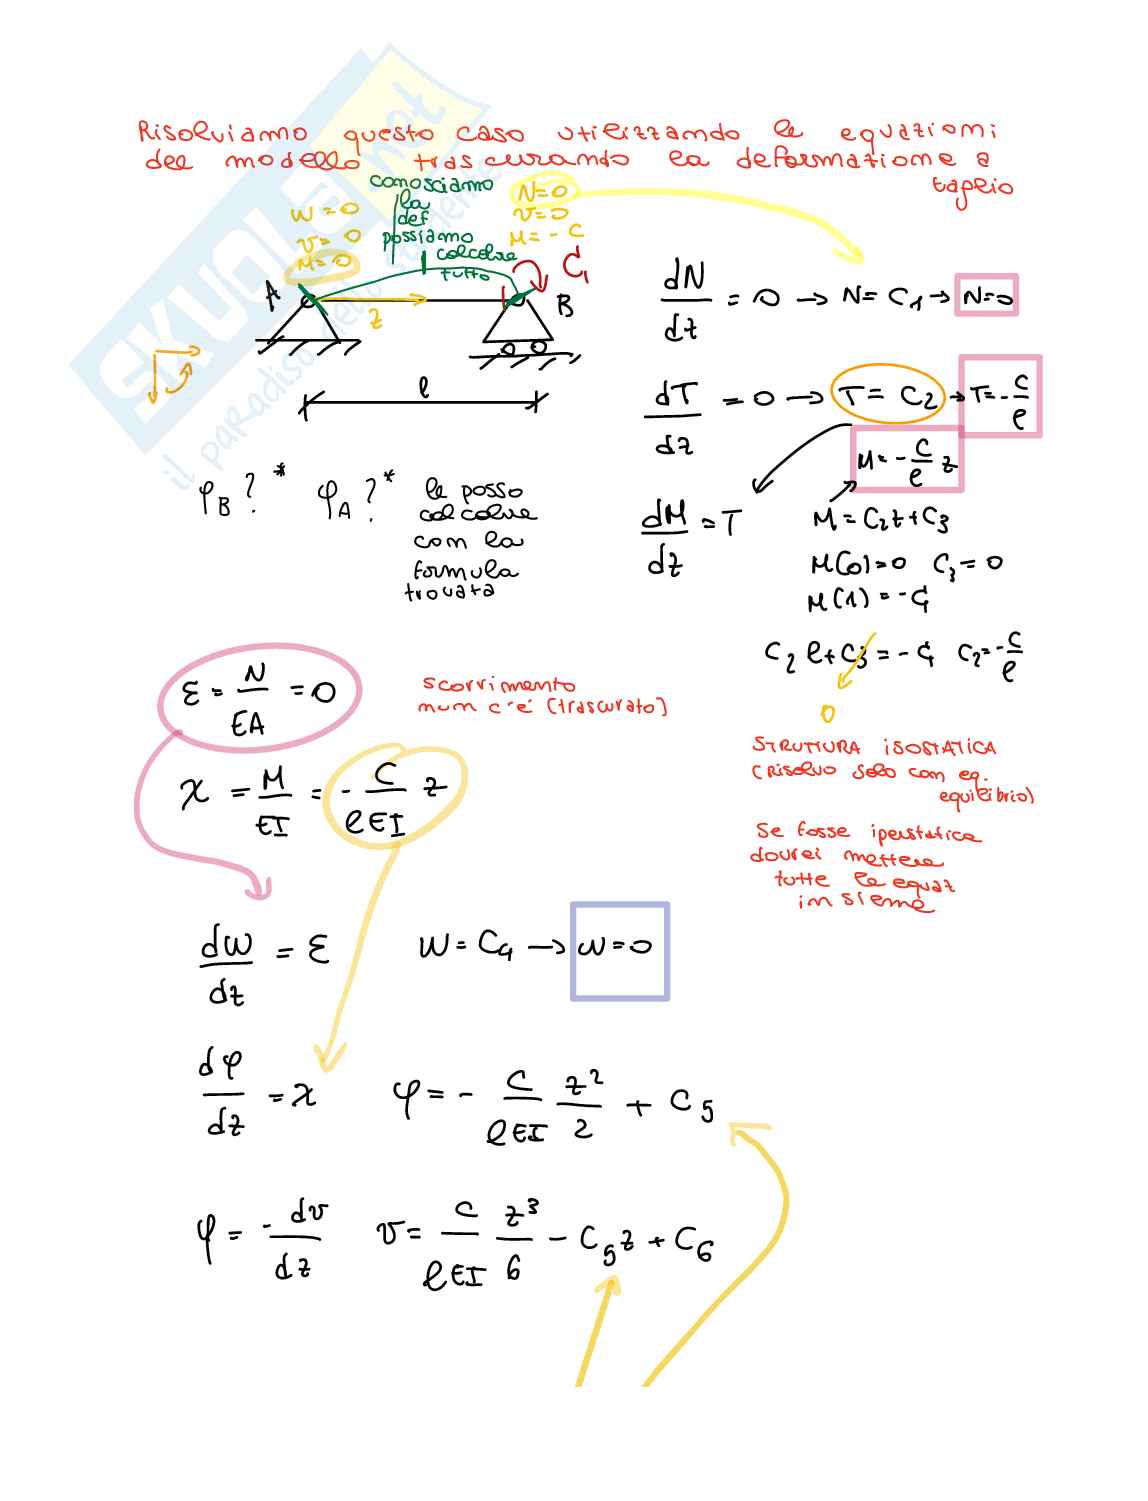 Risolviamo questo caso utilizzando le equazioni
del modello trascurando la deformazione a
taglio
conosciamo
la
def
possiamo
calcolare
tutto
w = 0
v = 0
M = 0
N = 0
v = 0
M = - C
C1
A
B
z
l
dN/dz = 0 → N = C1 → N = 0
dT/dz = 0 → T = C2 → T = - C/l
M = - C/l z
dM/dz = T
M = C2 z + C3
M(0) = 0 C3 = 0
M(1) = - C1
C2 l + C3 = - C1 C2 = - C/l
0
φB ? * φA ? * le posso
calcolare
con la
formula
trovata
STRUTTURA ISOSTATICA
(risolvo solo con eq.
equilibrio)
Se fosse iperstatica
dovrei mettere
tutte le equaz
insieme
ε = N/EA = 0
scorrimento
num c'é (trascurato)
χ = M/EI = - C/lEI z
dw/dz = ε w = C4 → w = 0
dφ/dz = χ φ = - C/lEI z²/2 + C5
φ = - dv/dz v = C/lEI z³/6 - C5 z + C6
SKUOLA.net
il paradiso dello studente